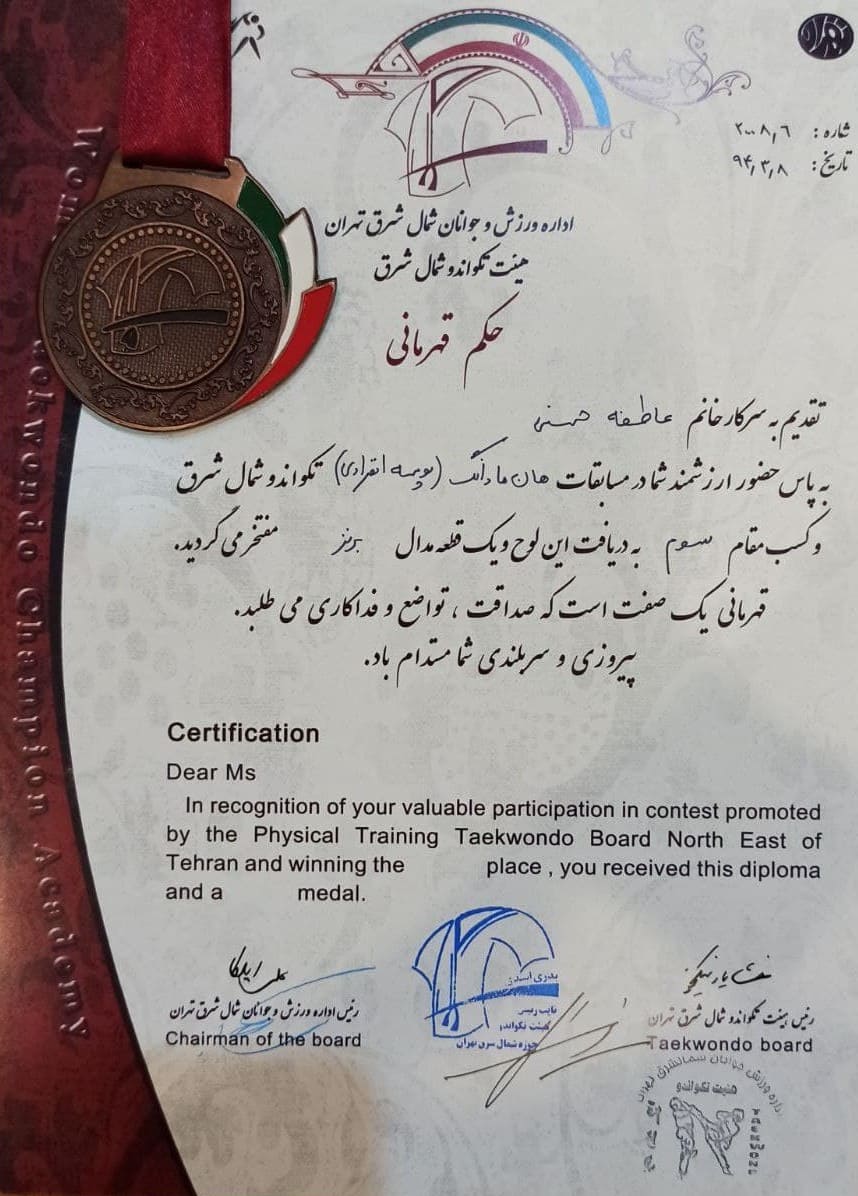 شماره: ۲۰۰۸٫۶
تاریخ: ۹۴٫۳٫۸
اداره ورزش و جوانان شمال شرق تهران
هیئت تکواندو شمال شرق
حکم قهرمانی
تقدیم به سرکار خانم عاطفه حسنی
به پاس حضور ارزشمند شما در مسابقات هان مادانگ (پومسه انفرادی) تکواندو شمال شرق
و کسب مقام سوم به دریافت این لوح و یک قطعه مدال برنز مفتخر می گردید.
قهرمانی یک صفت است که صداقت ، تواضع و فداکاری می طلبد.
پیروزی و سربلندی شما مستدام باد.
Certification
Dear Ms
In recognition of your valuable participation in contest promoted
by the Physical Training Taekwondo Board North East of
Tehran and winning the place , you received this diploma
and a medal.
رئیس هیئت تکواندو شمال شرق تهران
Taekwondo board
نایب رئیس
هیئت تکواندو
حوزه شمال شرق تهران
رئیس اداره ورزش و جوانان شمال شرق تهران
Chairman of the board
هیئت تکواندو
Taekwondo Champion Academy